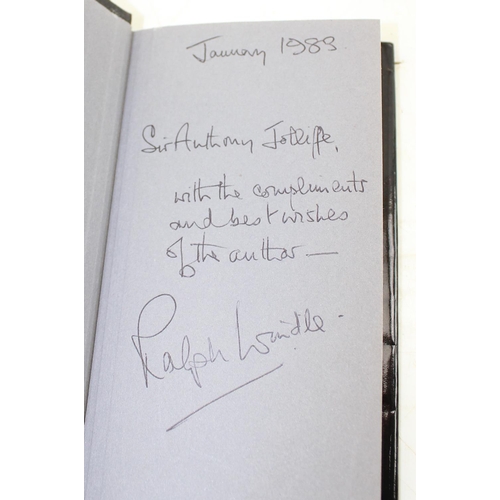 January 1983
Sir Anthony Jolliffe,
with the compliments
and best wishes
of the author —
Ralph Windle.